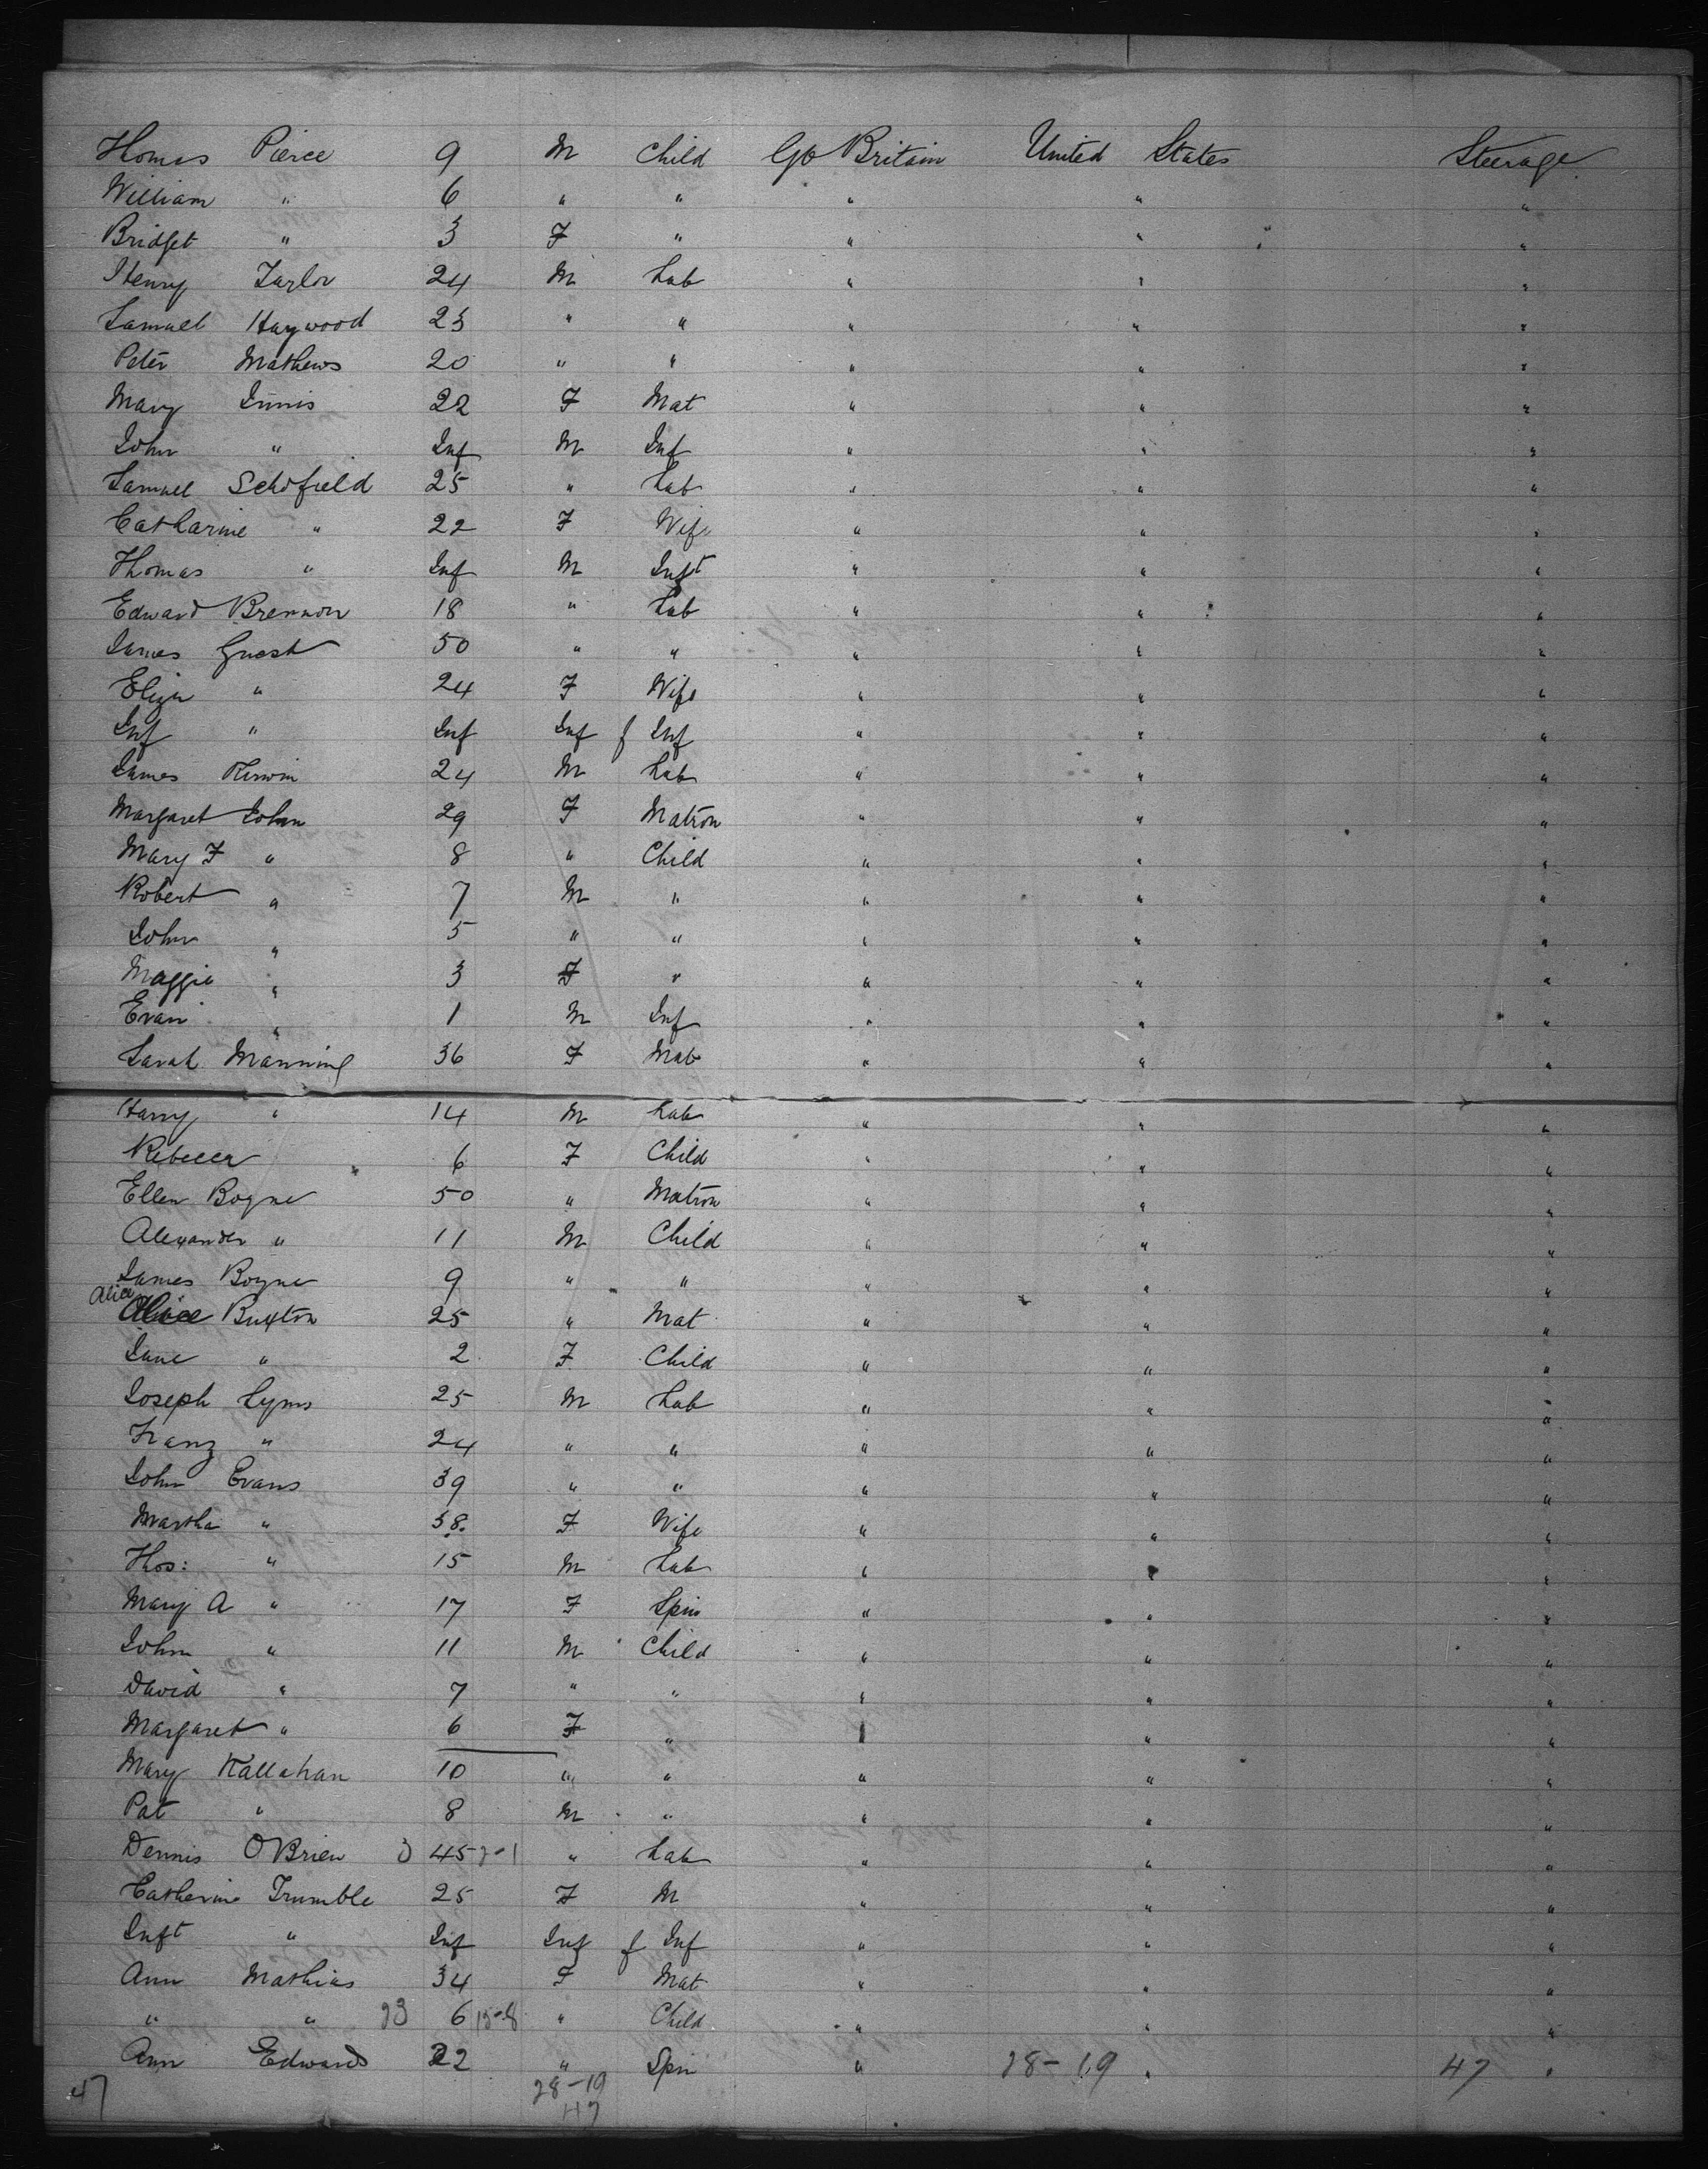 Thomas Pierce 9 M Child Gt Britain United States Steerage
William " 6 " " " " "
Bridget " 3 F " " " "
Henry Taylor 24 M Lab " " "
Samuel Haywood 23 " " " " "
Peter Mathews 20 " " " " "
Mary Innis 22 F Mat " " "
John " Inf M Inf " " "
Samuel Schofield 25 " Lab " " "
Catharine " 22 F Wife " " "
Thomas " Inf M Inft " " "
Edward Brennon 18 " Lab " " "
James Guest 50 " " " " "
Eliza " 24 F Wife " " "
Inf " Inf Inf f Inf " " "
James Kirwin 24 M Lab " " "
Margaret John 29 F Matron " " "
Mary F " 8 " Child " " "
Robert " 7 M " " " "
John " 5 " " " " "
Maggie " 3 F " " " "
Evan " 1 M Inf " " "
Sarah Manning 36 F Mat " " "
Harry " 14 M Lab " " "
Rebecca 6 F Child " " "
Ellen Bogne 50 " Matron " " "
Alexander " 11 M Child " " "
James Bogne 9 " " " " "
Alice
Alice Buxton 25 " Mat " " "
Jane " 2 F Child " " "
Joseph Lyms 25 M Lab " " "
Franz " 24 " " " " "
John Evans 39 " " " " "
Martha " 38 F Wife " " "
Thos: " 15 M Lab " " "
Mary A " 17 F Spin " " "
John " 11 M Child " " "
David " 7 " " " " "
Margaret " 6 F " " " "
Mary Kallahan 10 " " " " "
Pat " 8 M " " " "
Dennis O'Brien 45 " Lab " " "
Catherine Trumble 25 F M " " "
Inft " Inf Inf f Inf " " "
Ann Mathias 34 F Mat " " "
" " 6 " Child " " "
Ann Edwards 22 " Spin " 28-19 " 47 "
47 28-19
47